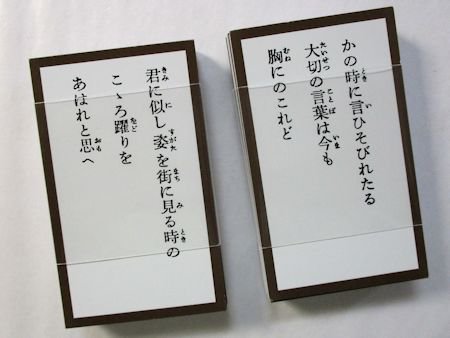 かの時に言ひそびれたる
大切の言葉は今も
胸にのこれど
君に似し姿を街に見る時の
こゝろ躍りを
あはれと思へ